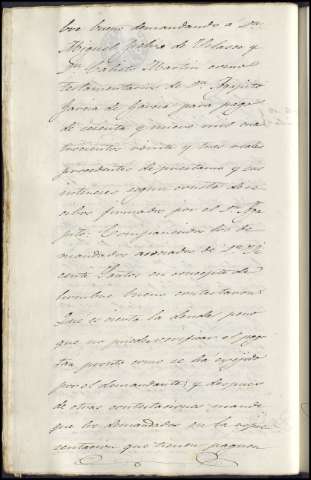 bre bueno demandando a Dn.
Miguel Gomez de Velasco y
Dn. Calisto Martin como
testamentarios de Dn. Agapito
Garcia de Garcia para pago
de cuenta y nueve mil cua
trocientos veinte y tres reales
procedentes de prestamo y sus
intereses segun consta de re
cibo firmado por el Dn. Aga
pito: Comparecidos los de
mandados asociados de Dn. Vi
cente Santos en concepto de
hombre bueno contestaron:
Que es cierta la deuda pero
que no puede verificar el pago
tan pronto como se ha exijido
por el demandante; y despues
de otras contestaciones mandó
que los demandados en la repre
sentacion que tienen paguen